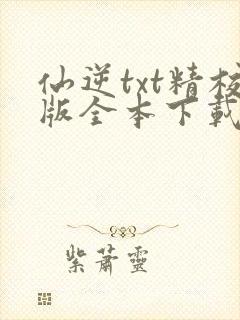 仙逆txt精校
版全本下载
紫萧靈